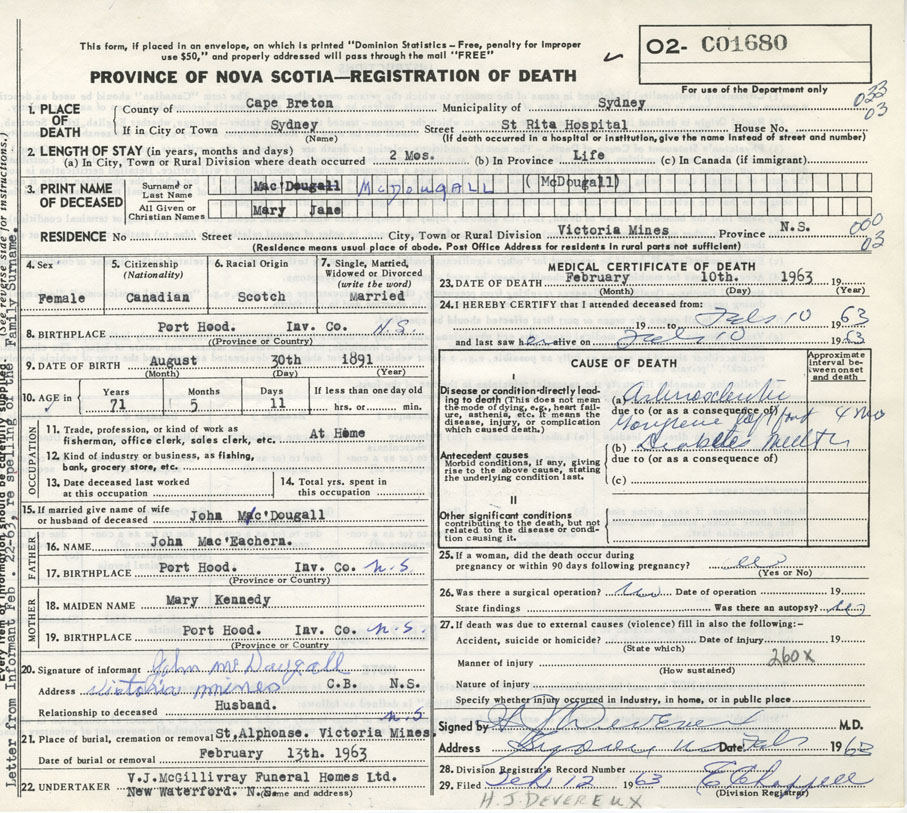 This form, if placed in an envelope, on which is printed "Dominion Statistics – Free, penalty for improper
use $50," and properly addressed will pass through the mail "FREE"
O2- C01680
PROVINCE OF NOVA SCOTIA—REGISTRATION OF DEATH
For use of the Department only
033
03
1. PLACE OF DEATH
County of Cape Breton Municipality of Sydney
If in City or Town Sydney Street St Rita Hospital House No.
(Name) (If death occurred in a hospital or institution, give the name instead of street and number)
2. LENGTH OF STAY (in years, months and days)
(a) In City, Town or Rural Division where death occurred 2 Mos. (b) In Province Life (c) In Canada (if immigrant)
3. PRINT NAME OF DECEASED
Surname or Last Name Mac'Dougall McDOUGALL (McDougall)
All Given or Christian Names Mary Jane
RESIDENCE No Street City, Town or Rural Division Victoria Mines Province N.S.
000
02
(Residence means usual place of abode. Post Office Address for residents in rural parts not sufficient)
4. Sex Female
5. Citizenship (Nationality) Canadian
6. Racial Origin Scotch
7. Single, Married, Widowed or Divorced (write the word) Married
8. BIRTHPLACE Port Hood. Inv. Co. N.S.
(Province or Country)
9. DATE OF BIRTH August 30th 1891
(Month) (Day) (Year)
10. AGE in Years 71 Months 5 Days 11 If less than one day old hrs. or min.
OCCUPATION
11. Trade, profession, or kind of work as fisherman, office clerk, sales clerk, etc. At Home
12. Kind of industry or business, as fishing, bank, grocery store, etc.
13. Date deceased last worked at this occupation
14. Total yrs. spent in this occupation
15. If married give name of wife or husband of deceased John Mac'Dougall
FATHER
16. NAME John Mac'Eachern.
17. BIRTHPLACE Port Hood. Inv. Co. N.S
(Province or Country)
MOTHER
18. MAIDEN NAME Mary Kennedy
19. BIRTHPLACE Port Hood. Inv. Co. N.S
(Province or Country)
20. Signature of informant John McDougall
Address Victoria mines C.B. N.S.
Relationship to deceased Husband.
N.S
21. Place of burial, cremation or removal St,Alphonse. Victoria Mines.
Date of burial or removal February 13th. 1963
22. UNDERTAKER V.J.McGillivray Funeral Homes Ltd.
New Waterford. N.S. (Name and address)
MEDICAL CERTIFICATE OF DEATH
23. DATE OF DEATH February 10th. 1963 19
(Month) (Day) (Year)
24. I HEREBY CERTIFY that I attended deceased from:
19 to Feb 10 1963
and last saw her alive on Feb 10 1963
CAUSE OF DEATH
Approximate interval between onset and death
I
Disease or condition directly leading to death (This does not mean the mode of dying, e.g., heart failure, asthenia, etc. It means the disease, injury, or complication which caused death.)
(a)
due to (or as a consequence of)
Gangrene foot 4 mo
(b) Diabetes
due to (or as a consequence of)
(c)
Antecedent causes
Morbid conditions, if any, giving rise to the above cause, stating the underlying condition last.
II
Other significant conditions
contributing to the death, but not related to the disease or condition causing it.
25. If a woman, did the death occur during
pregnancy or within 90 days following pregnancy? no
(Yes or No)
26. Was there a surgical operation? no Date of operation 19
State findings Was there an autopsy? no
27. If death was due to external causes (violence) fill in also the following:–
Accident, suicide or homicide? Date of injury 19
(State which)
260x
Manner of injury
(How sustained)
Nature of injury
Specify whether injury occurred in Industry, in home, or in public place
Signed by H J Devereux M.D.
Address Sydney Date Feb 1963
28. Division Registrar's Record Number
29. Filed Feb 12 1963 E Chappell
(Division Registrar)
H.J. DEVEREUX
Letter from Informant Feb. 22-63, re spelling of the Family Surname.
(See reverse side for instructions.)